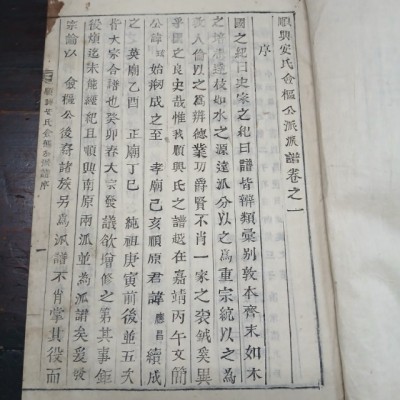 順興安氏僉樞公派派譜卷之一
序
國之紀曰史家之紀曰譜皆辨類彙別敦本齊末如木
之 達枝如水之源達派分以之爲重宗統以之爲
敦人倫以之爲辨德業功爵賢不肖一家之袞鉞奚異
乎國之良史哉惟我順興氏之譜越在嘉靖丙午文簡
公諱 始刱成之至 孝廟己亥順原君諱應昌續成
之 英廟乙酉 正廟丁巳 純祖庚寅前後並五大
 合譜也癸卯春大宗發議欲增修之第其事鉅
役煩迄未能經紀且順興南原兩派並爲派譜矣爰發
宗論以 僉樞公後裔諸族另爲派譜不肖掌其役而
順興安氏僉樞公派譜序 一